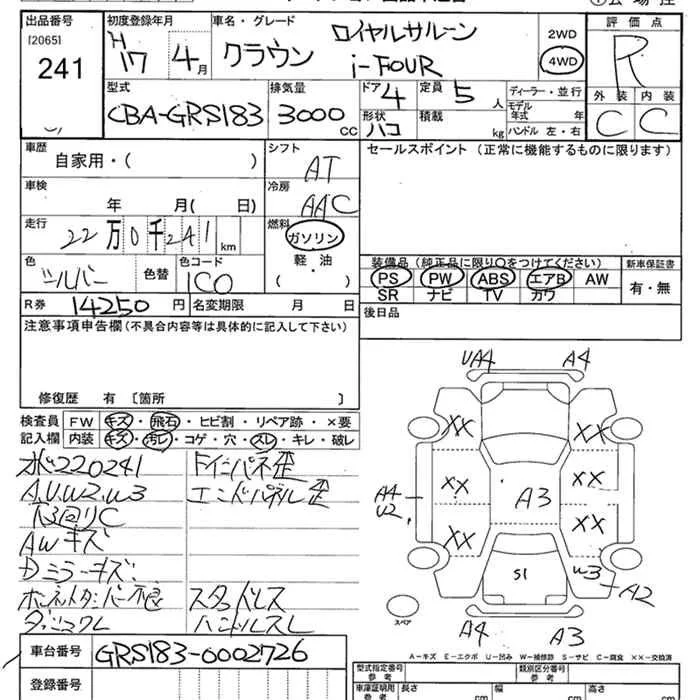 出品番号 初度登録年月 車名・グレード 評価点
[2065] H ロイヤルサルーン 2WD
241 17 4月 クラウン i-FOUR 4WD R
型式 排気量 ドア 4 定員 5人 ディーラー・並行 外装 内装
CBA-GRS183 3000cc 形状 ハコ 積載 kg モデル年式 年 C C
ハンドル 左・右
車歴 シフト セールスポイント (正常に機能するものに限ります)
自家用・( ) AT
車検 冷房
年 月( 日) AAC
走行 燃料
22万0千241km ガソリン
軽・油
( )
装備品(純正品に限り○をつけてください) 新車保証書
色 色替 色コード PS PW ABS エアB AW 有・無
シルバー 1C0 SR ナビ TV カワ
R券 14250円 名変期限 月 日 後日品
注意事項申告欄(不具合内容等は具体的に記入して下さい)
修復歴 有 〔箇所 〕
検査員 FW キズ・飛石・ヒビ割・リペア跡・×要
記入欄 内装 キズ・汚レ・コゲ・穴・スレ・キレ・破レ
220241
A.U.W2.W3 エンドパネル歪
下回りC
AWキズ
Dミラーキズ
スタッドレス
車台番号 GRS183-0002726
登録番号
UA4 A4
XX XX
A4 XX A3 XX
U2
XX XX
S1 W3 A2
スペア
A4 A3
A-キズ E-エクボ U-凹み W-補修跡 S-サビ C-腐食 XX-交換済
型式指定番号 類別区分番号
参考 参考
車庫証明用 長さ 幅 高さ
参考 cm cm cm